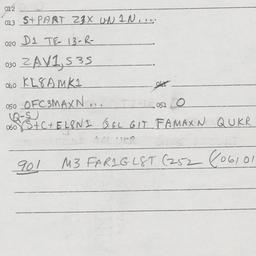 012
013 S+PART Z8X UN1N....
020 D1 TE-13-R-
030 ZAV1,535
040 KL8AMK1
050 OFC3MAXN ... 051 O
(Q-S)
060 S+C+EL8N1 GEL GIT FAMAXN QUKR
901 M3 FAR1GL8T (252 (06101